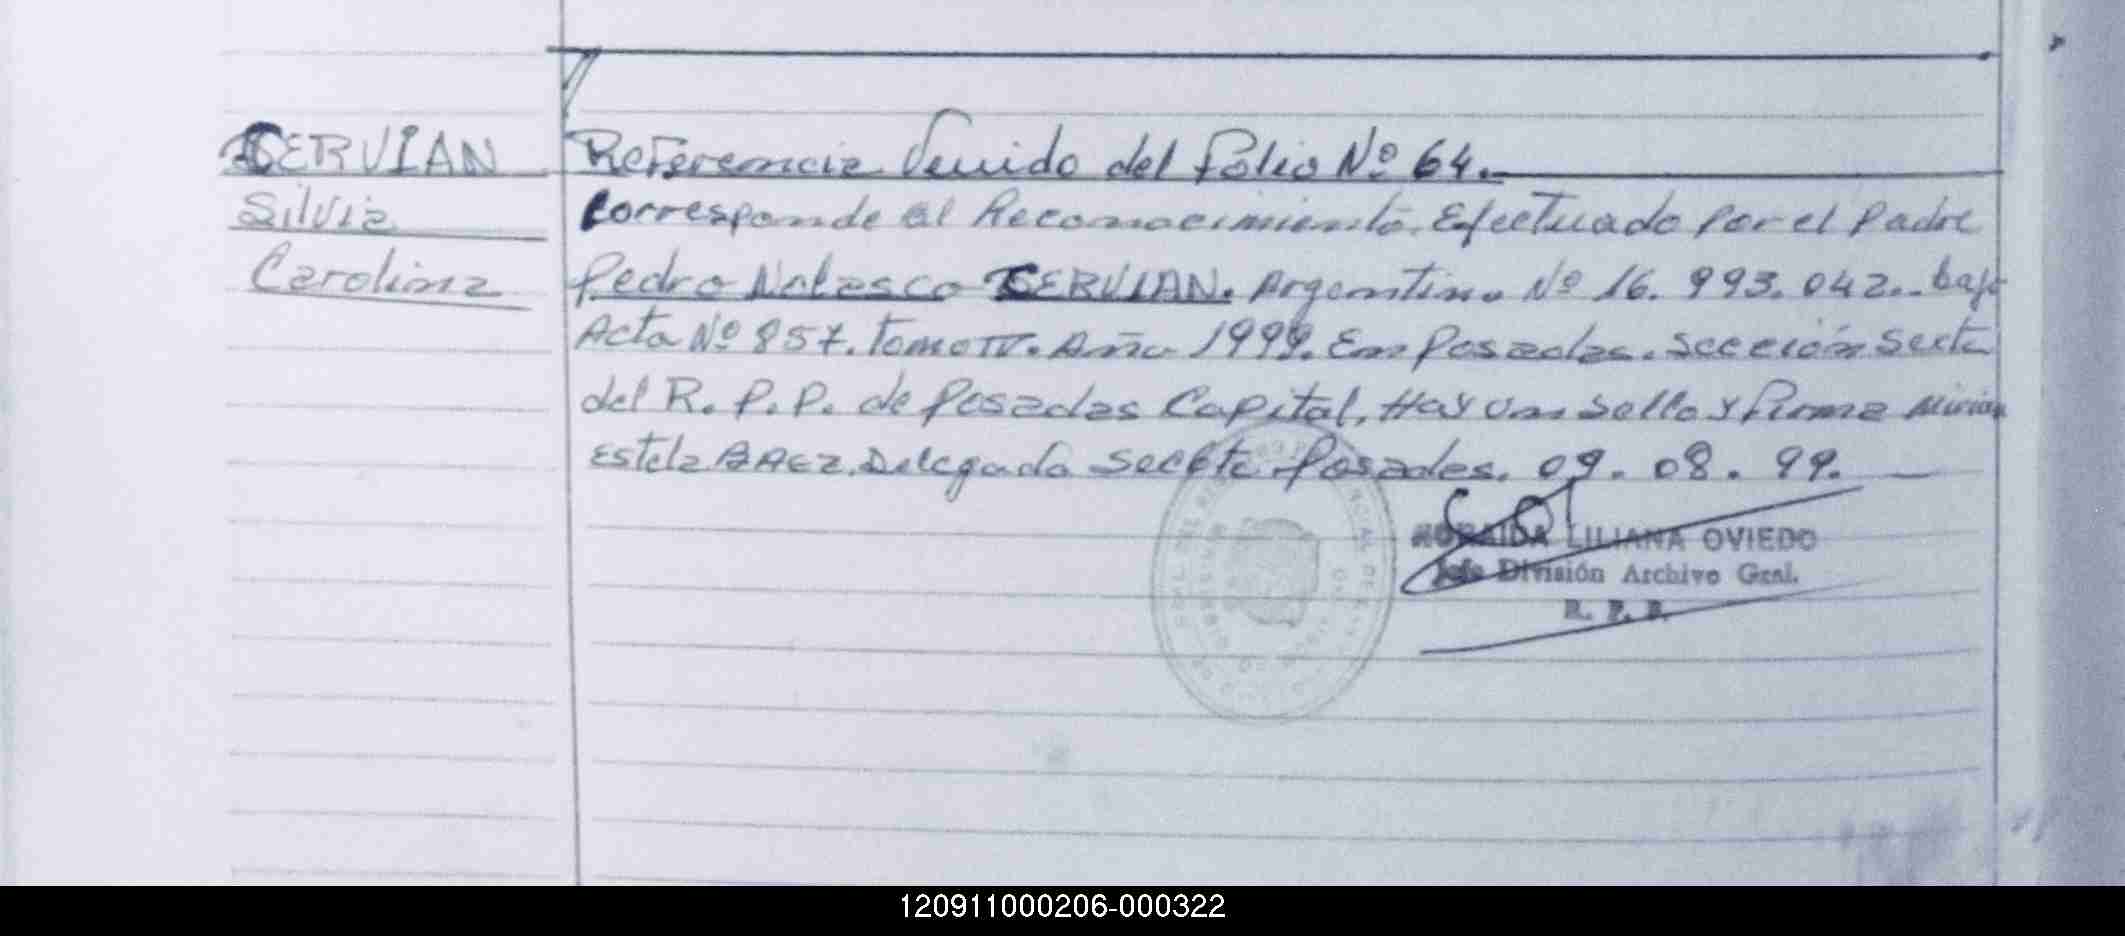 CERVIAN
Silvia
Carolina
Referencia Venido del folio Nº 64.
Corresponde al Reconocimiento. Efectuado por el padre
Pedro Nolasco CERVIAN. Argentino Nº 16.993.042.. bajo
Acta Nº 857. tomo IV. Año 1999. En Posadas. Sección Sexta
del R. P. P. de Posadas Capital, Hay un sello y firma Mirian
Estela BAEZ. Delegada Posadas. 09. 08. 99.
LILIANA OVIEDO
Jefe División Archivo Gral.
R. P. P.
120911000206-000322